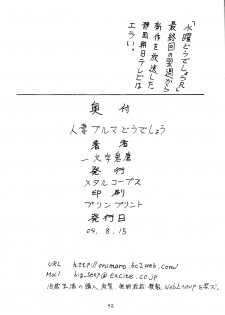 「水曜どうでしょうR」
最終回の翌週から
新作を放送した
静岡朝日テレビは
エラい。
奥付
人妻ブルマどうでしょう
著者
一文字悪魔
発行
メタルコープス
印刷
プリンプリント
発行日
04.8.15
URL http://onimaro.fc2web.com/
Mail big_sexy@excite.co.jp
18歳未満の購入、
92